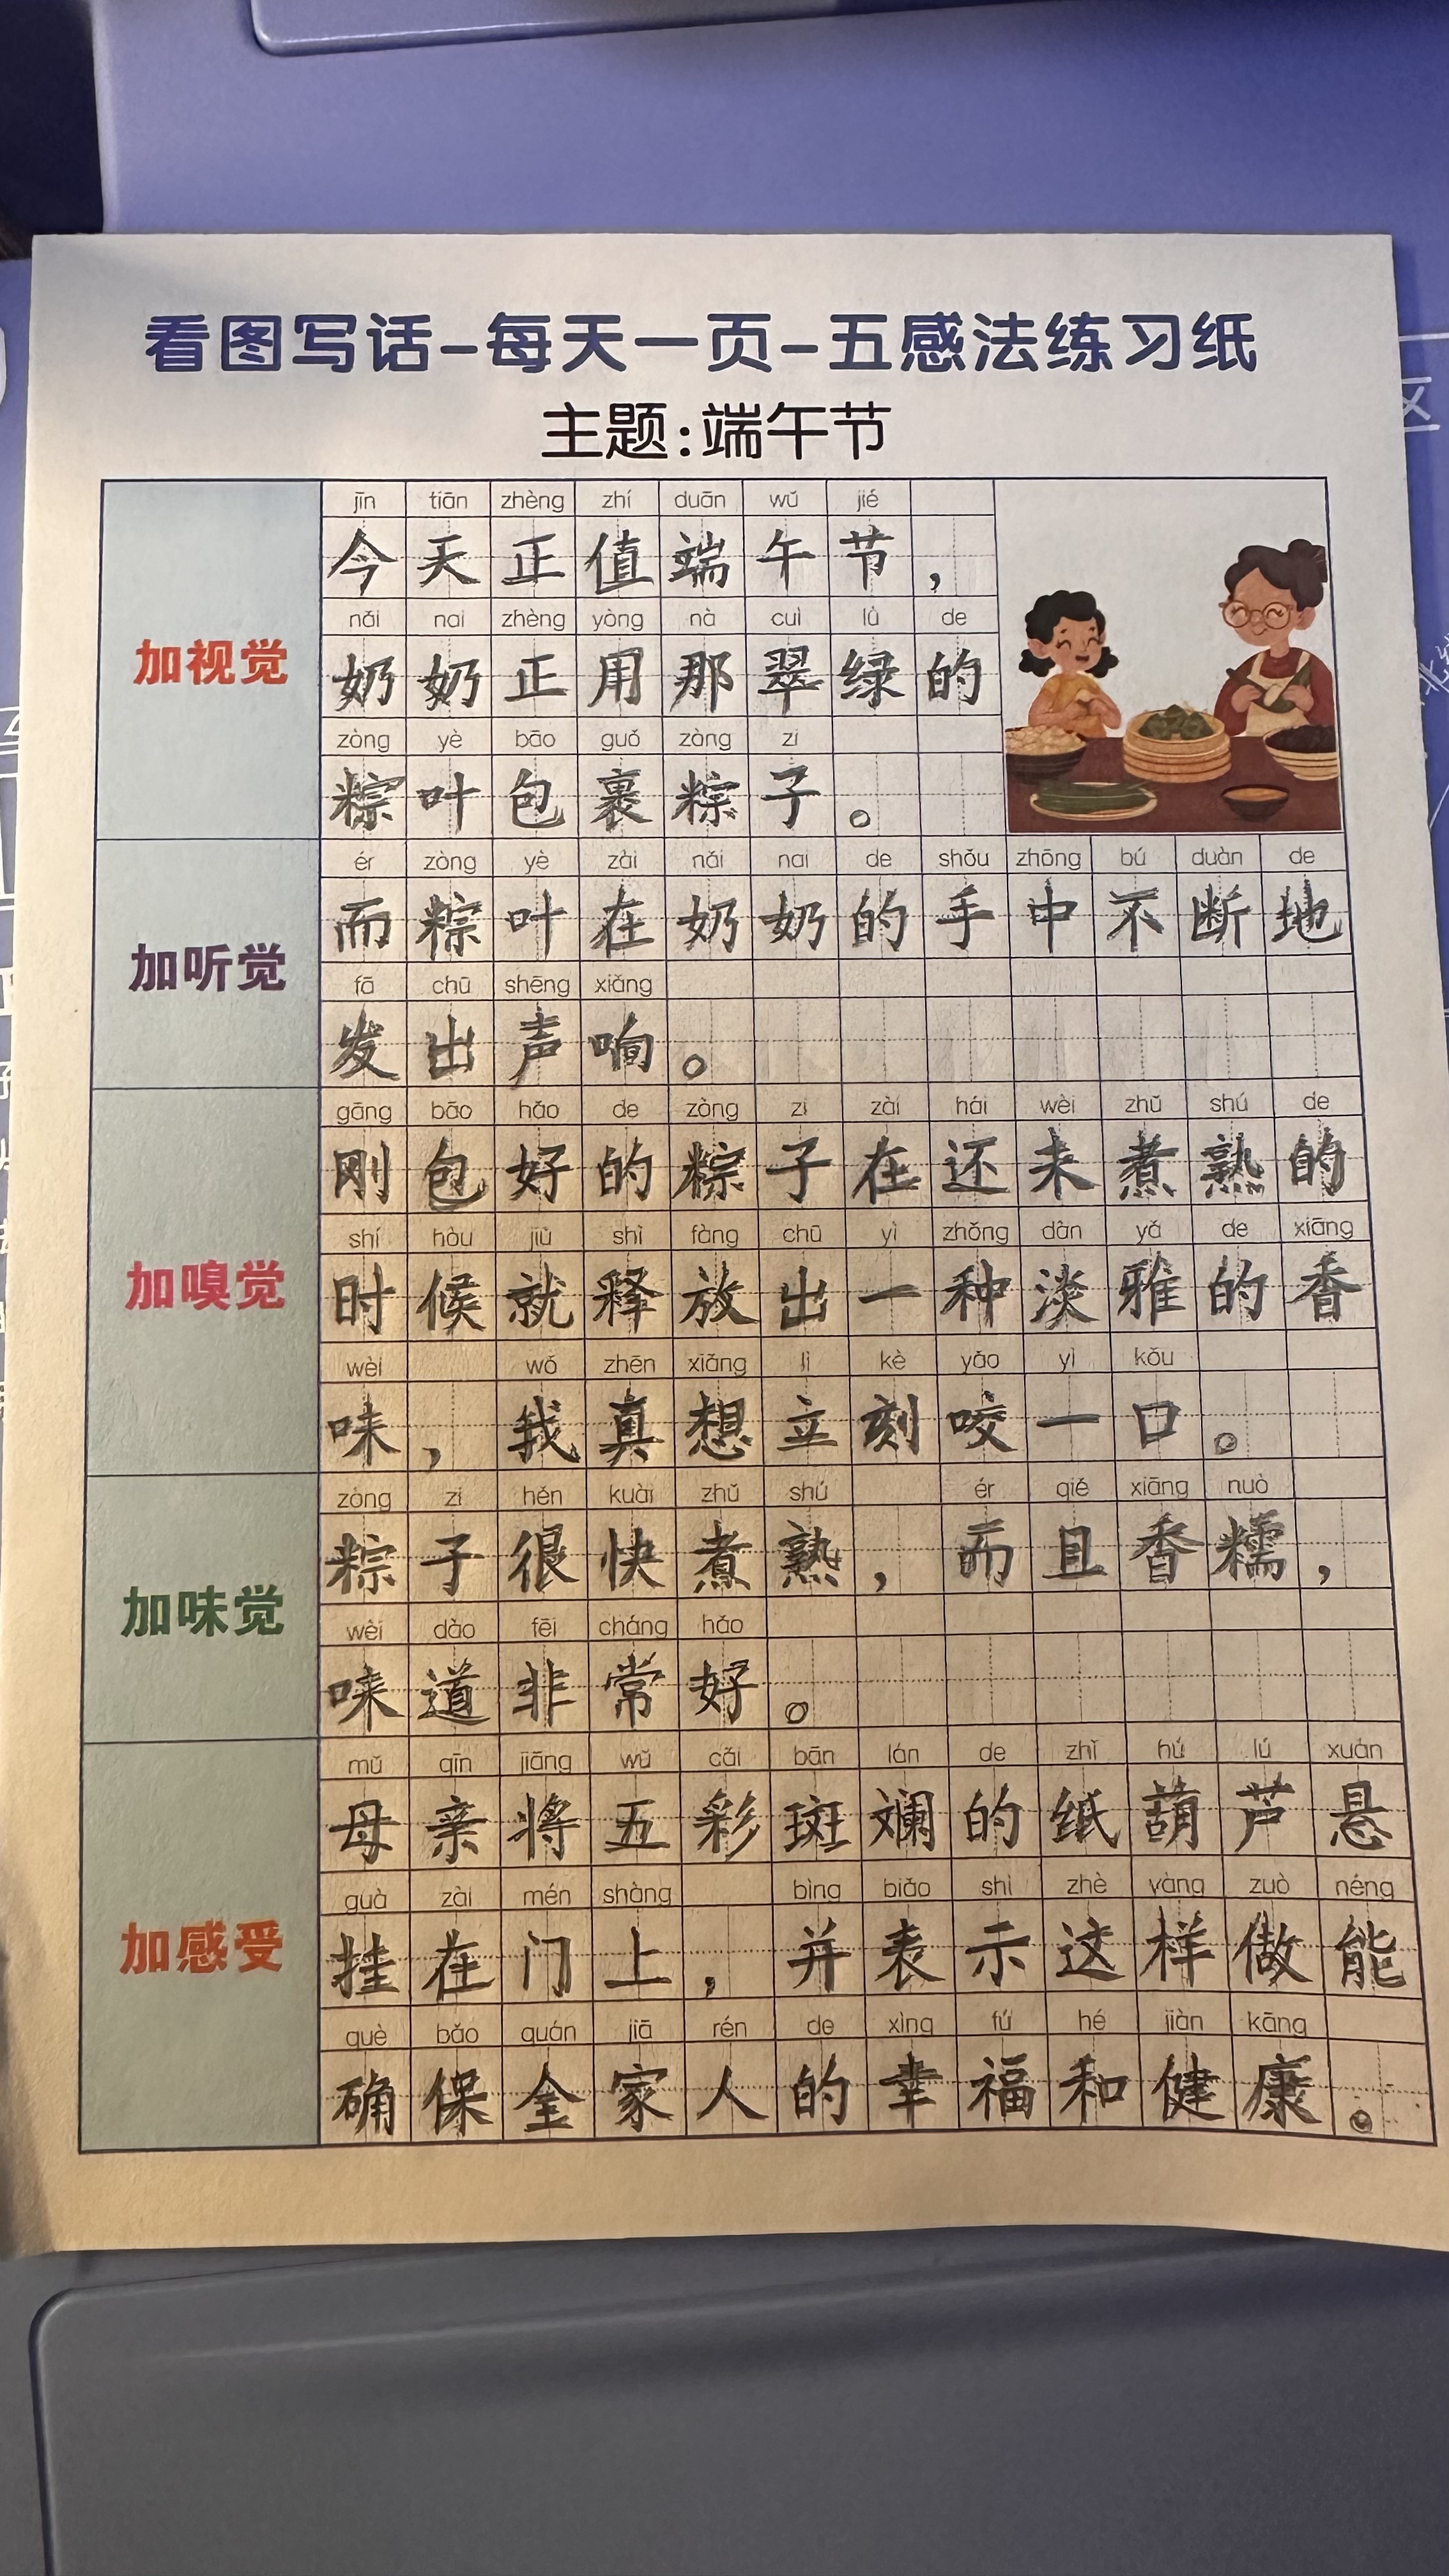 看图写话-每天一页-五感法练习纸
主题:端午节
加视觉
jīn tiān zhèng zhí duān wǔ jié
今天正值端午节，
nǎi nai zhèng yòng nà cuì lǜ de
奶奶正用那翠绿的
zòng yè bāo guǒ zòng zi
粽叶包裹粽子。
加听觉
ér zòng yè zài nǎi nai de shǒu zhōng bú duàn de
而粽叶在奶奶的手中不断地
fā chū shēng xiǎng
发出声响。
加嗅觉
gāng bāo hǎo de zòng zi zài hái wèi zhǔ shú de
刚包好的粽子在还未煮熟的
shí hòu jiù shì fàng chū yì zhǒng dàn yǎ de xiāng
时候就释放出一种淡雅的香
wèi wǒ zhēn xiǎng lì kè yǎo yì kǒu
味，我真想立刻咬一口。
加味觉
zòng zi hěn kuài zhǔ shú ér qiě xiāng nuò
粽子很快煮熟，而且香糯，
wèi dào fēi cháng hǎo
味道非常好。
加感受
mǔ qīn jiāng wǔ cǎi bān lán de zhǐ hú lú xuán
母亲将五彩斑斓的纸葫芦悬
guà zài mén shàng bìng biǎo shì zhè yàng zuò néng
挂在门上，并表示这样做能
què bǎo quán jiā rén de xìng fú hé jiàn kāng
确保全家人的幸福和健康。
区